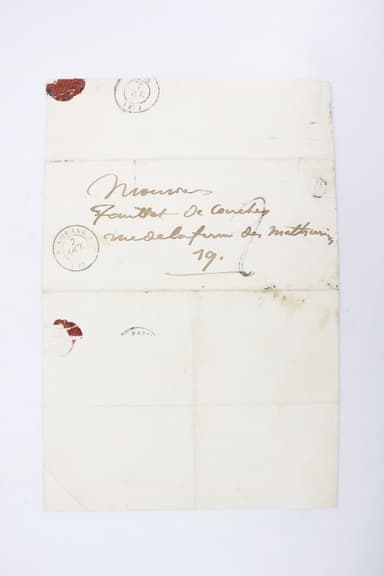 Monsieur
Feuillet de Conches
rue de la ferme des Mathurins
19.